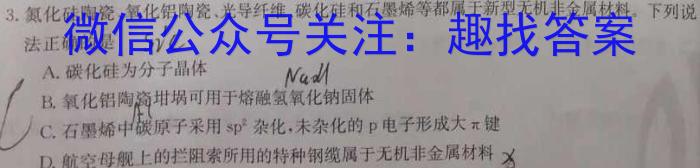 3. 氮化硅陶瓷、氧化铝陶瓷、光导纤维、碳化硅和石墨烯等都属于新型无机非金属材料。下列说
法正确的是
微信公众号关注：趣找答案
A. 碳化硅为分子晶体
NaOH
B. 氧化铝陶瓷坩埚可用于熔融氢氧化钠固体
Al
C. 石墨烯中碳原子采用 sp² 杂化，未杂化的 p 电子形成大 π 键
D. 航空母舰上的拦阻索所用的特种钢缆属于无机非金属材料